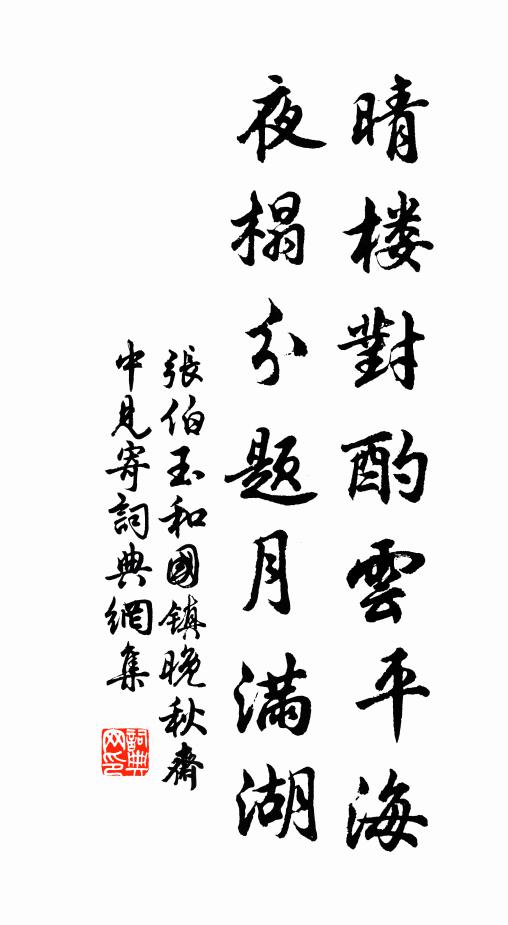 晴楼對酌雲平海
夜榻分题月满湖
張伯玉和國镇晚秋齋
中見寄詞典網集
詞典网印